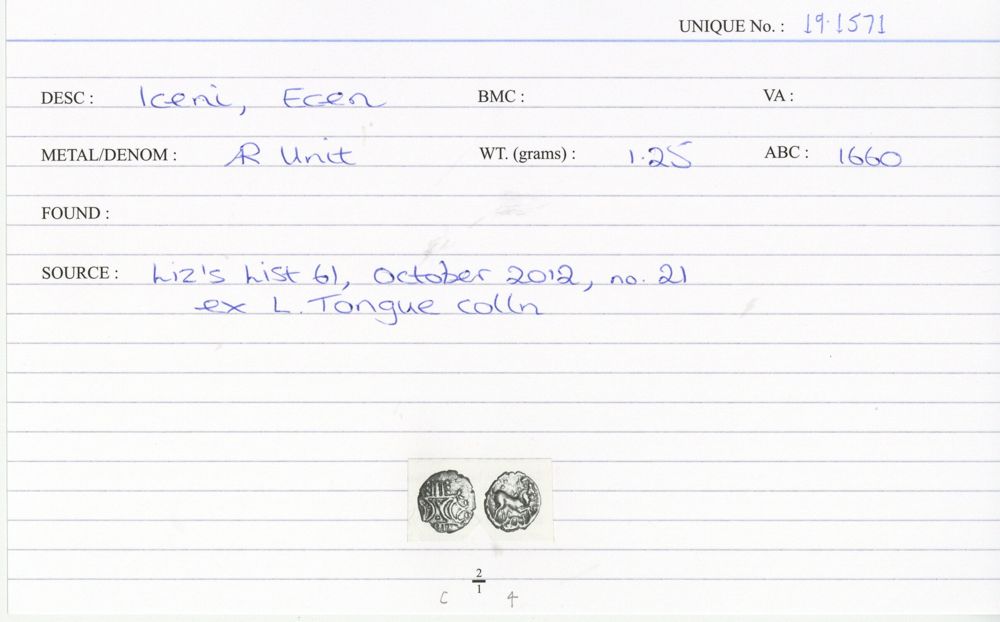 UNIQUE No. : 19.1571
DESC : Iceni, Ecen BMC : VA :
METAL/DENOM : AR Unit WT. (grams) : 1.25 ABC : 1660
FOUND :
SOURCE : Liz's List 61, October 2012, no. 21
ex L. Tongue colln
2
1
C 4